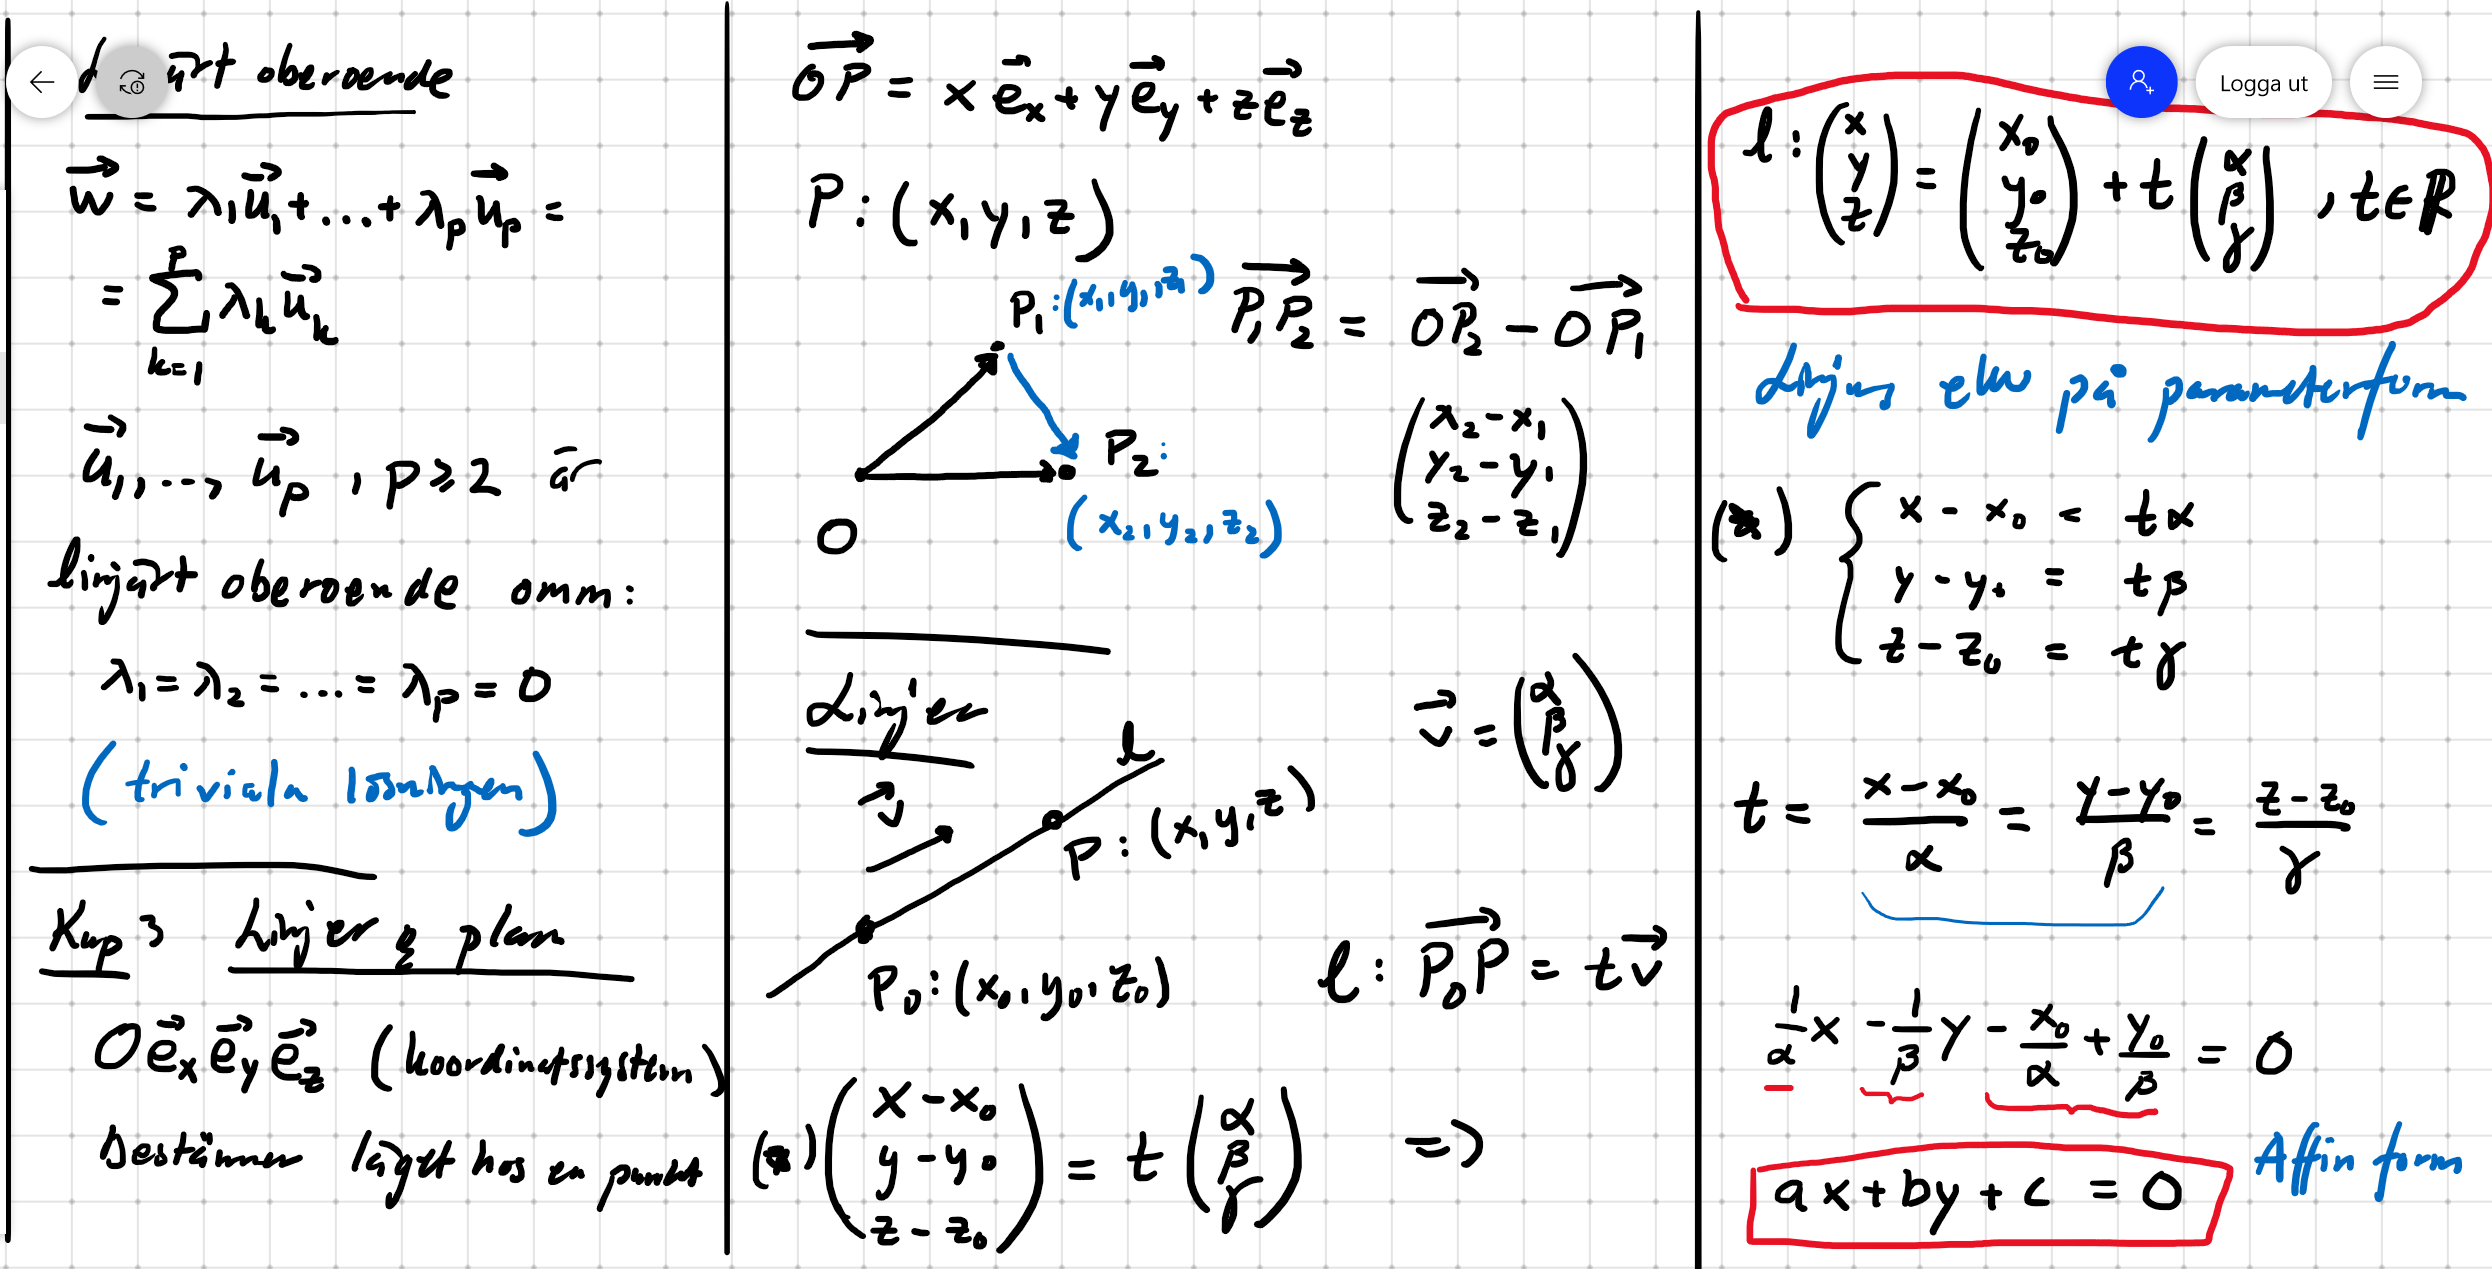 ärt oberoende
w⃗ = λ₁u⃗₁ + ... + λₚu⃗ₚ =
= ∑ₖ₌₁ᵖ λₖu⃗ₖ
u⃗₁, ..., u⃗ₚ , p ≥ 2 är
linjärt oberoende omm:
λ₁ = λ₂ = ... = λₚ = 0
(triviala lösningen)
Kap 3 Linjer & plan
O e⃗x e⃗y e⃗z (koordinatsystem)
Bestämmer läget hos en punkt
OP⃗ = x e⃗x + y e⃗y + z e⃗z
P : (x, y, z)
P₁ : (x₁, y₁, z₁)
P₁P₂⃗ = OP₂⃗ − OP₁⃗
(x₂ − x₁
y₂ − y₁
z₂ − z₁)
P₂ :
(x₂, y₂, z₂)
O
Linjer
l
v⃗
v⃗ = (α
β
γ)
P : (x, y, z)
P₀ : (x₀, y₀, z₀)
l : P₀P⃗ = t v⃗
(*) (x − x₀
y − y₀
z − z₀) = t (α
β
γ) =>
Logga ut
l : (x
y
z) = (x₀
y₀
z₀) + t (α
β
γ) , t ∈ ℝ
Linjens ekv på parameterform
(*) { x − x₀ = tα
y − y₀ = tβ
z − z₀ = tγ
t = (x − x₀)/α = (y − y₀)/β = (z − z₀)/γ
1/α x − 1/β y − x₀/α + y₀/β = 0
Affin form
ax + by + c = 0